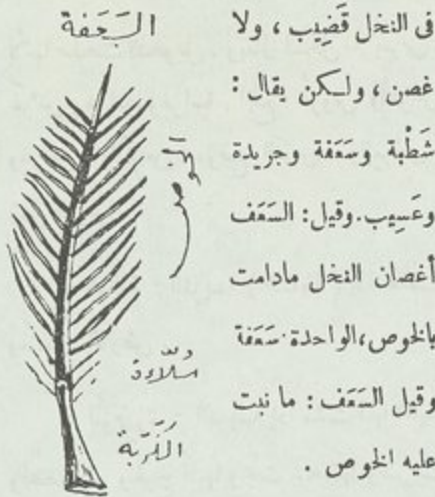 السَّعَفة
فى النخل قَضِيب ، ولا
غصن ، ولكن يقال :
شَطْبة وسَعَفة وجريدة
وعَسِيب . وقيل : السَّعَف
أغصان النخل مادامت
بالخوص ، الواحدة سَعَفة
وقيل السَّعَف : ما نبت
عليه الخوص .
الخوص
سُلّاءة
الكَرَبة